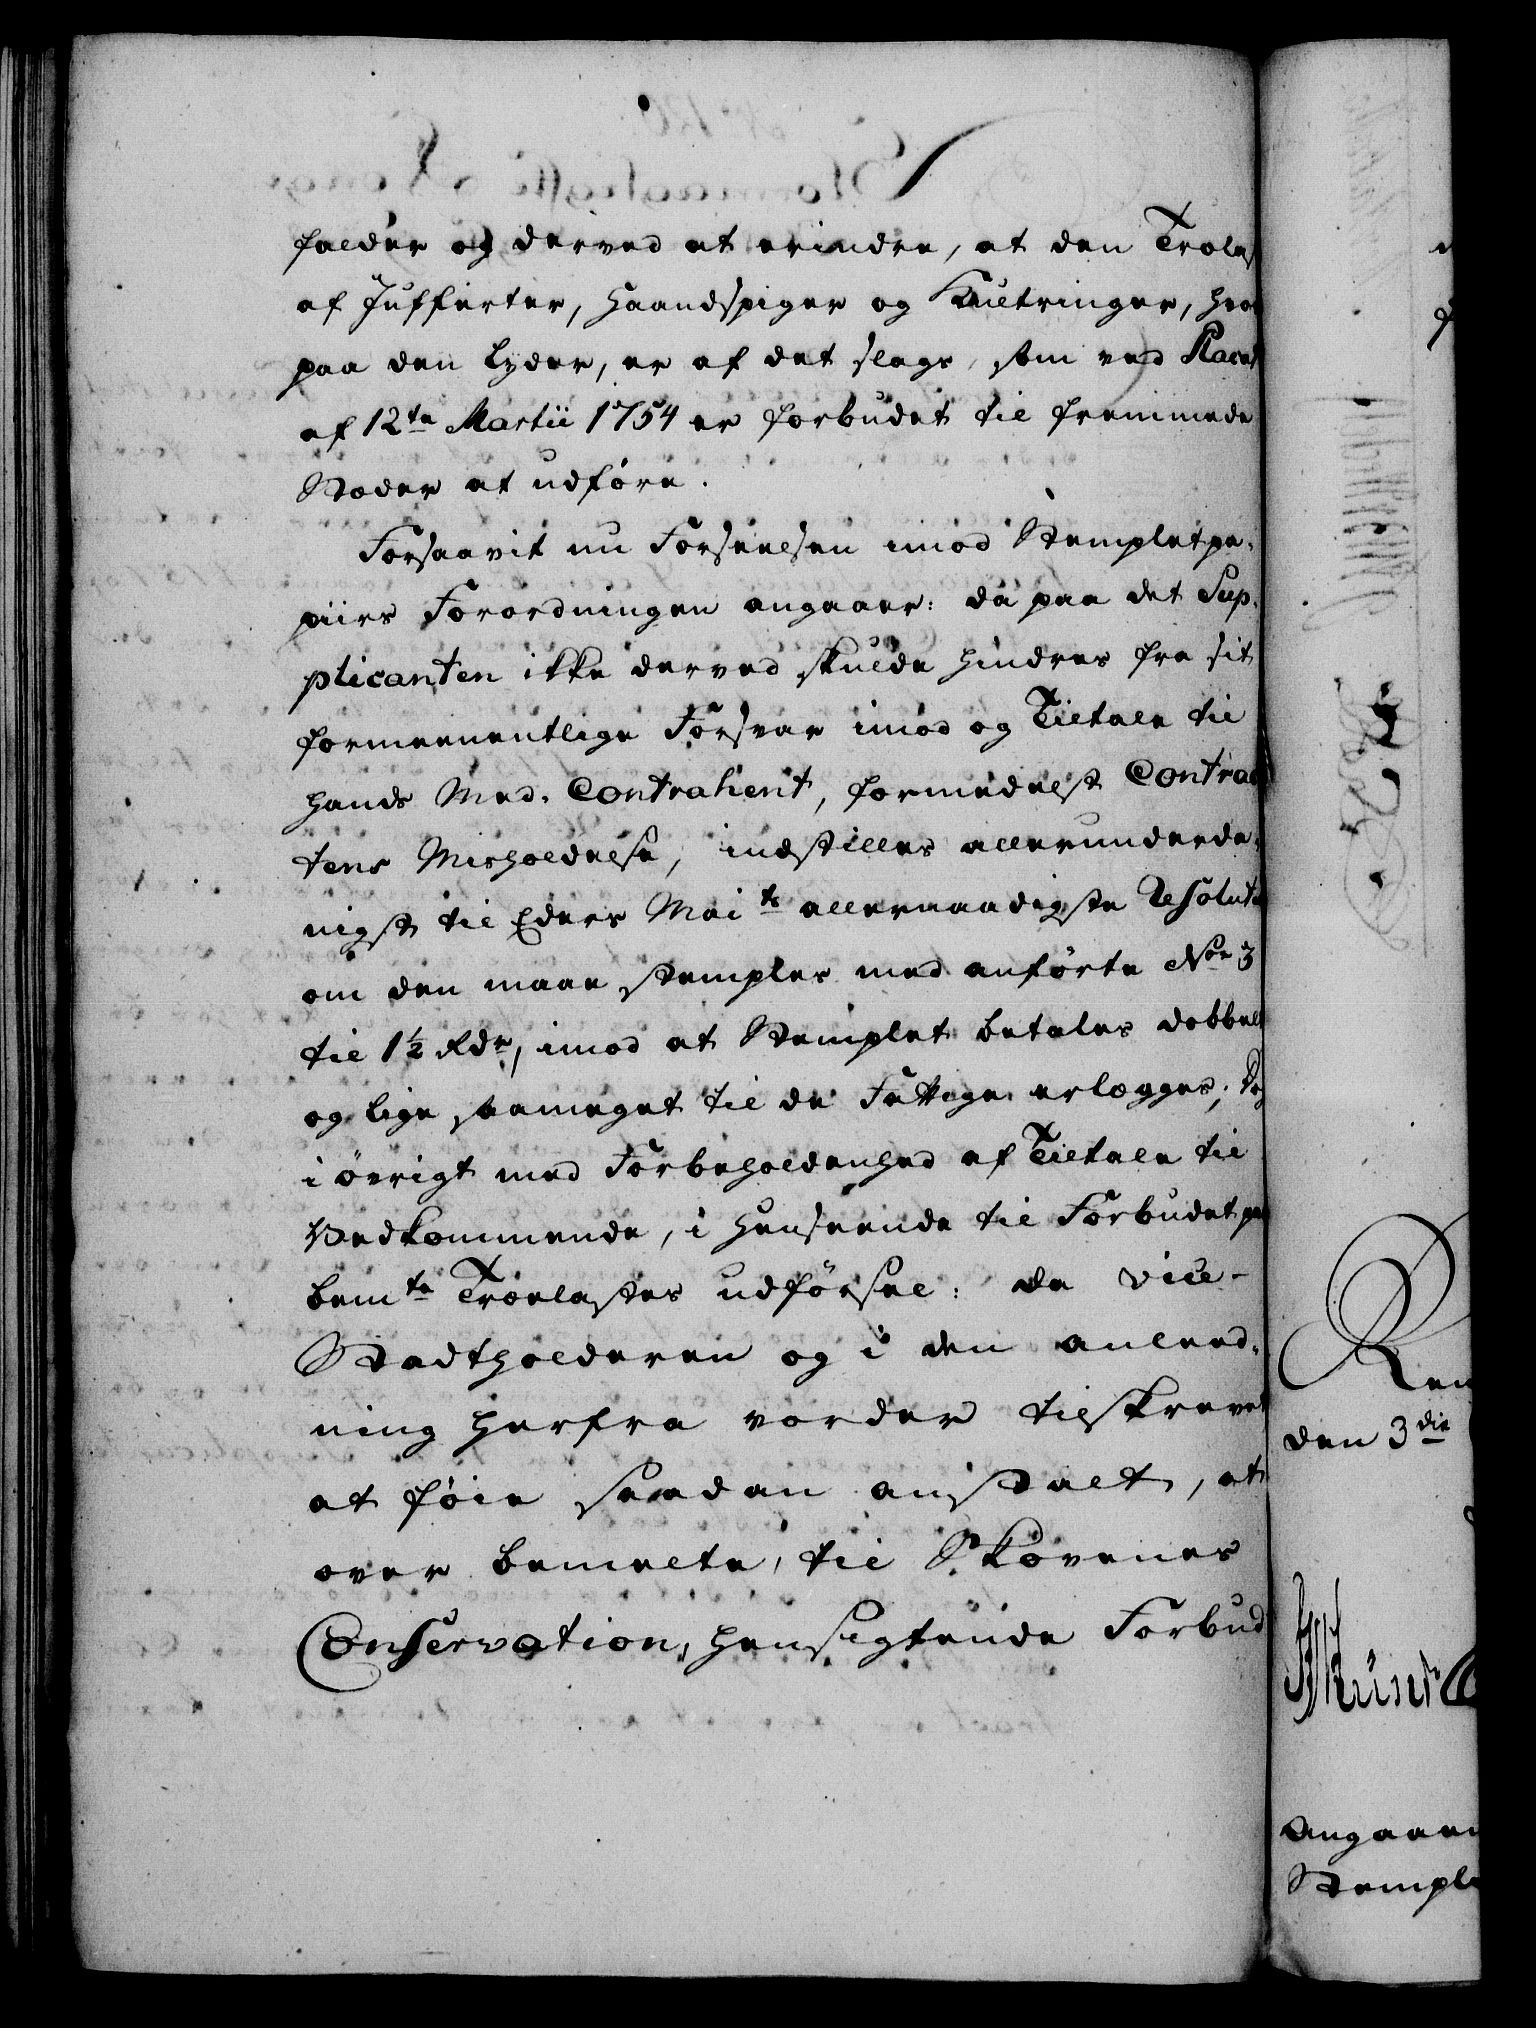 falder og derved at erindre, at den Trolas
af Jufferter, Haandspiger og Knetringer, hvor
paa den lyder, er af det slags, som ved Placat
af 12te Martii 1754 er forbudet til fremmede
Stæder at udføre.
Forsaavit nu Forseelsen imod Stemplet pa-
piirs Forordningen angaaer: da paa det Sup-
plicanten ikke derved skulde hindres fra sit
formeenentlige Forsvar imod og Tiltale til
hands Med-Contrahent, formedelst Contrac
tens Misholdelse, indstilles allerunderda-
nigst til Eders Maits allernaadigste Resoluti
om den maae stemples med anførte No 3
til 1½ Rdr, imod at Stemplet betales dobbelt
og lige saameget til de Fattige erlægges; Dog
i øvrigt med Forbeholdenhed af Tiltale til
Vedkommende, i Henseende til Forbudet paa
bemte Trælastes udførsel: da Vice-
Stadtholderen og i den anleed-
ning herfra vorder tilskrevet
at føie saadan anstalt, at
over bemelte, til Skovenes
Conservation, hensigtende Forbud
Ren
den 3die
Angaaen
Stempl